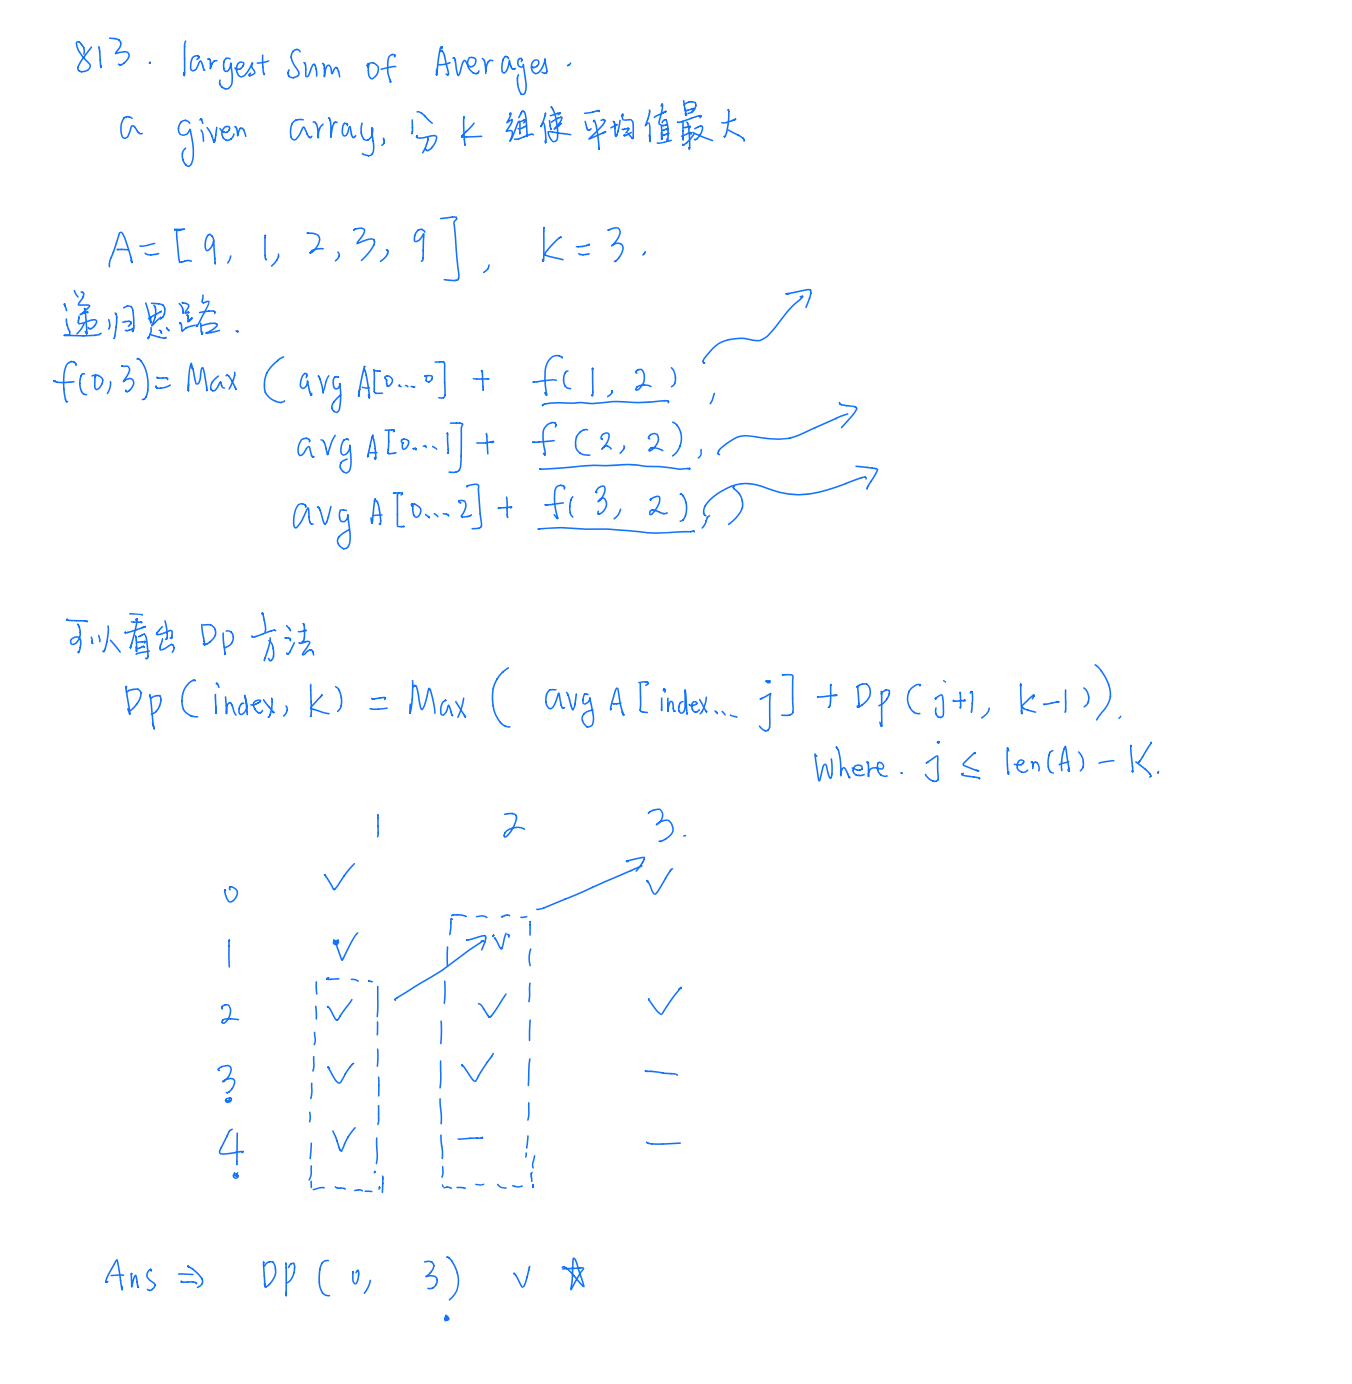 813. largest Sum of Averages.
a given array, 分 K 组使平均值最大
A=[9, 1, 2, 3, 9], K=3.
递归思路.
f(0,3)= Max ( avg A[0...0] + f(1, 2),
avg A[0...1] + f(2, 2),
avg A[0...2] + f(3, 2),)
可以看出 Dp 方法
Dp(index, k) = Max ( avg A[index... j] + Dp(j+1, k-1)).
Where. j ≤ len(A) - K.
1 2 3.
0 ✓ ✓
1 ✓ ✓
2 ✓ ✓ ✓
3 ✓ ✓ —
4 ✓ — —
Ans ⇒ DP(0, 3) ✓ ☆